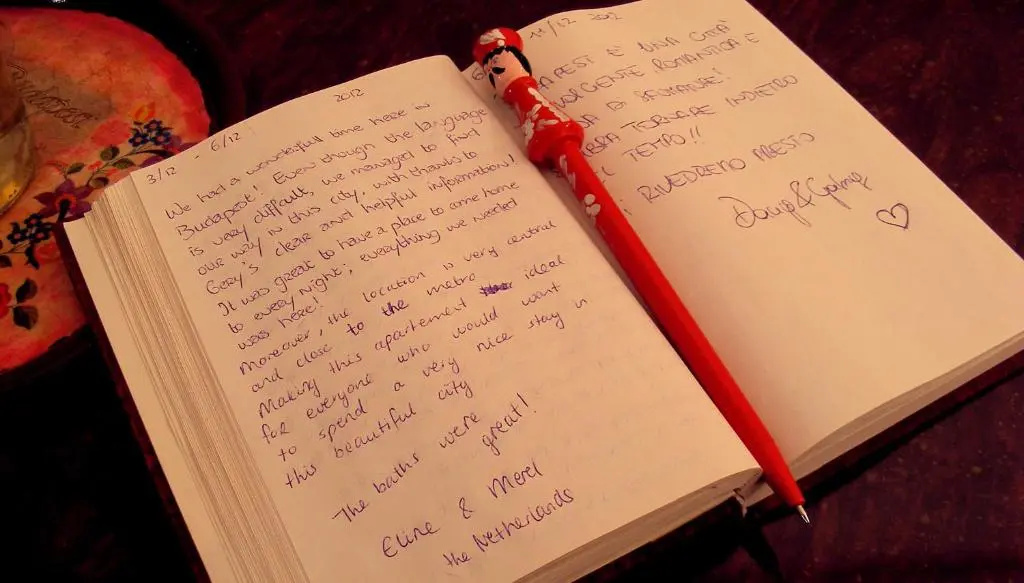 2012
3/12 - 6/12
We had a wonderful time here in
Budapest! Even though the language
is very difficult, we managed to find
our way in this city, with thanks to
Gery's clear and helpful information!
It was great to have a place to come home
to every night; everything we needed
was here!
Moreover, the location is very central
and close to the metro
Making this apartement ideal
for everyone who would want
to spend a very nice stay in
this beautiful city
The baths were great!
Eline & Merel
the Netherlands
/12 2012
PEST È UNA CITTÀ
ROMANTICA E
TORNARE INDIETRO
TEMPO!!
RIVEDREMO PRESTO